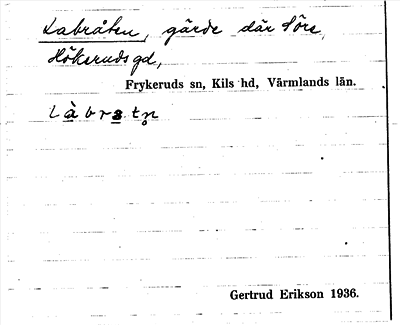 Labråten, gärde där Sörs
Hökerudsgd,
Frykeruds sn, Kils hd, Värmlands län.
Gertrud Erikson 1936.